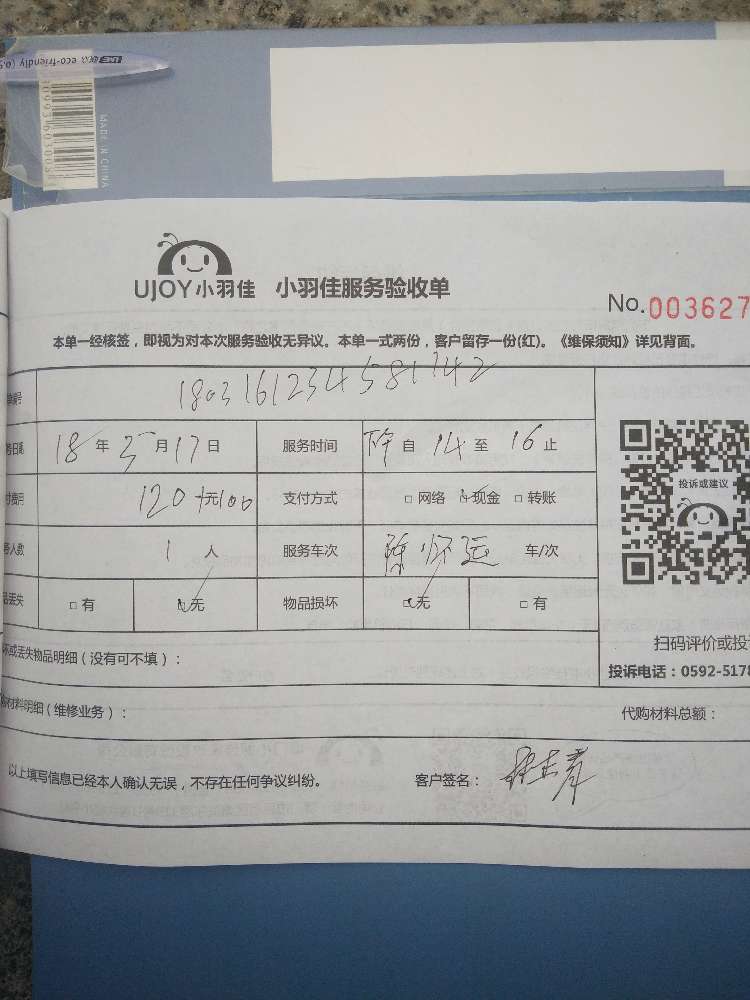 MADE IN CHINA
UJOY小羽佳 小羽佳服务验收单
No.003627
本单一经核签，即视为对本次服务验收无异议。本单一式两份，客户留存一份(红)。《维保须知》详见背面。
1803161234581742
18年3月17日 服务时间 下午自14至16止
120+元100 支付方式 □网络 □现金 □转账
投诉或建议
1人 服务车次 陈怀运 车/次
□有 □无 物品损坏 □无 □有
坏或丢失物品明细（没有可不填）：
扫码评价或投
投诉电话：0592-5178
购材料明细（维修业务）： 代购材料总额：
以上填写信息已经本人确认无误，不存在任何争议纠纷。 客户签名：